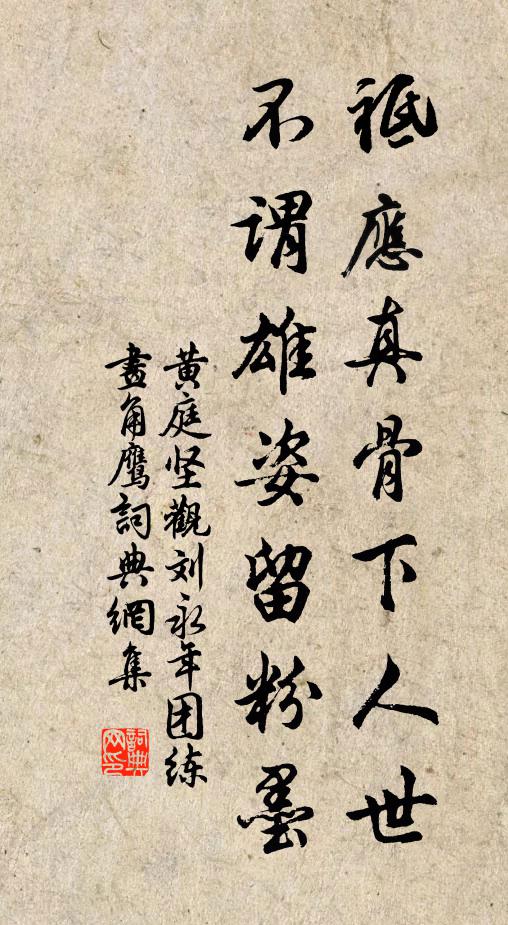 祗應真骨下人世
不謂雄姿留粉墨
黄庭坚觀刘永年团练
畫角鷹詞典網集
詞典網印